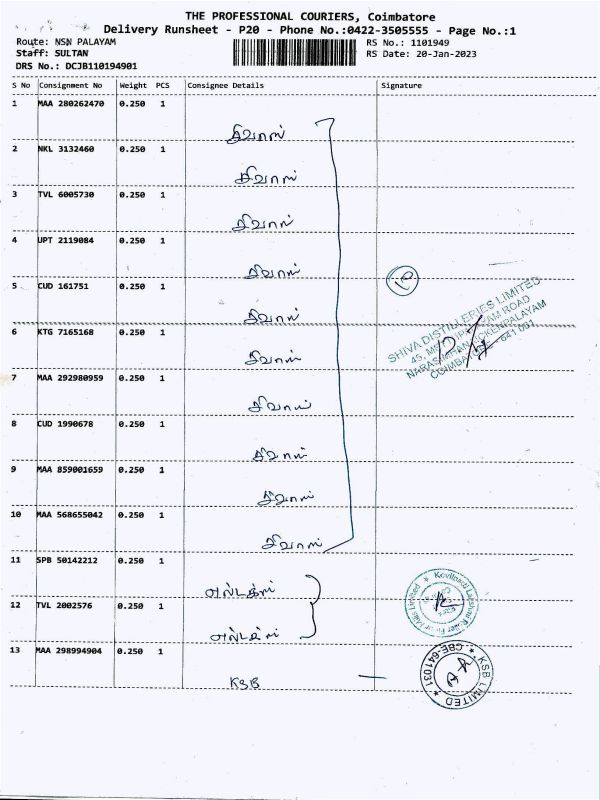 THE PROFESSIONAL COURIERS, Coimbatore
Delivery Runsheet - P20 - Phone No.:0422-3505555 - Page No.:1
Route: NSN PALAYAM RS No.: 1101949
Staff: SULTAN RS Date: 20-Jan-2023
DRS No.: DCJB110194901
S No Consignment No Weight PCS Consignee Details Signature
1 MAA 280262470 0.250 1
சிவாஸ்
2 NKL 3132460 0.250 1
சிவாஸ்
3 TVL 6005730 0.250 1
சிவாஸ்
4 UPT 2119084 0.250 1
சிவாஸ்
5 CUD 161751 0.250 1
சிவாஸ்
6 KTG 7165168 0.250 1
சிவாஸ்
7 MAA 292980959 0.250 1
சிவாஸ்
8 CUD 1990678 0.250 1
சிவாஸ்
9 MAA 859001659 0.250 1
சிவாஸ்
10 MAA 568655042 0.250 1
சிவாஸ்
10
SHIVA DISTILLERIES LIMITED
ROAD
COIMBATORE - 641 031
11 SPB 50142212 0.250 1
12 TVL 2002576 0.250 1
Kovilpatti Lakshmi Roller Flour Mills Limited
13 MAA 298994904 0.250 1
KSB
KSB LIMITED
CBE-641031